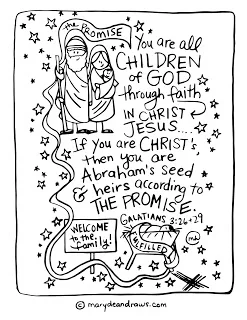 the PROMISE
You are all
CHILDREN
of GOD
through faith
IN CHRIST
JESUS....
If you are CHRIST's,
then you are
Abraham's Seed
& heirs according to
THE PROMISE.
GALATIANS 3:26+29
WELCOME
to the
family!
FULFILLED
md
© marydeandraws.com